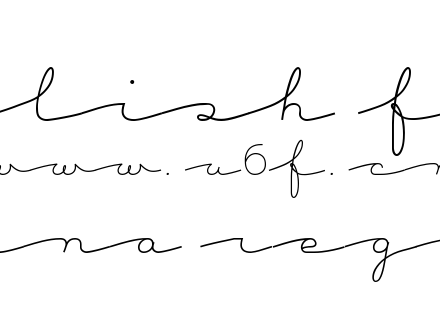 lish f
ww. u6f. cn
na reg